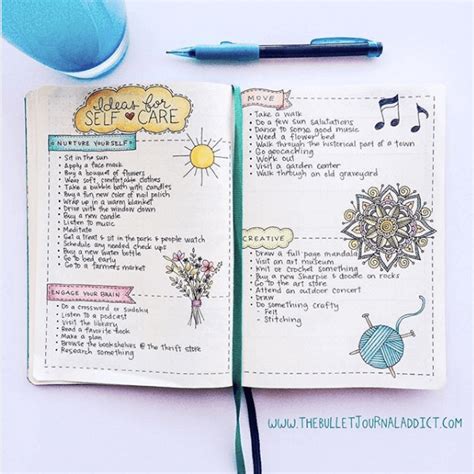 Ideas for
SELF CARE
NURTURE YOURSELF
• Sit in the sun
• Apply a face mask
• Buy a bouquet of flowers
• Wear soft, comfortable clothes
• Take a bubble bath with candles
• Buy a fun new color of nail polish
• Wrap up in a warm blanket
• Drive with the window down
• Buy a new candle
• Listen to music
• Meditate
• Get a treat & sit in the park & people watch
• Schedule any needed check ups
• Buy a new water bottle
• Go to bed early
• Go to a farmers market
ENGAGE YOUR BRAIN
• Do a crossword or sudoku
• Listen to a podcast
• Visit the library
• Read a favorite book
• Make a plan
• Browse the bookshelves @ the thrift store
• Research something
MOVE
• Take a walk
• Do a few sun salutations
• Dance to some good music
• Weed a flower bed
• Walk through the historical part of a town
• Go geocaching
• Work out
• Visit a garden center
• Walk through an old graveyard
CREATIVE
• Draw a full page mandala
• Visit an art museum
• Knit or crochet something
• Buy a new Sharpie & doodle on rocks
• Go to the art store
• Attend an outdoor concert
• Draw
• Do something crafty
- Felt
- Stitching
WWW.THEBULLETJOURNALADDICT.COM